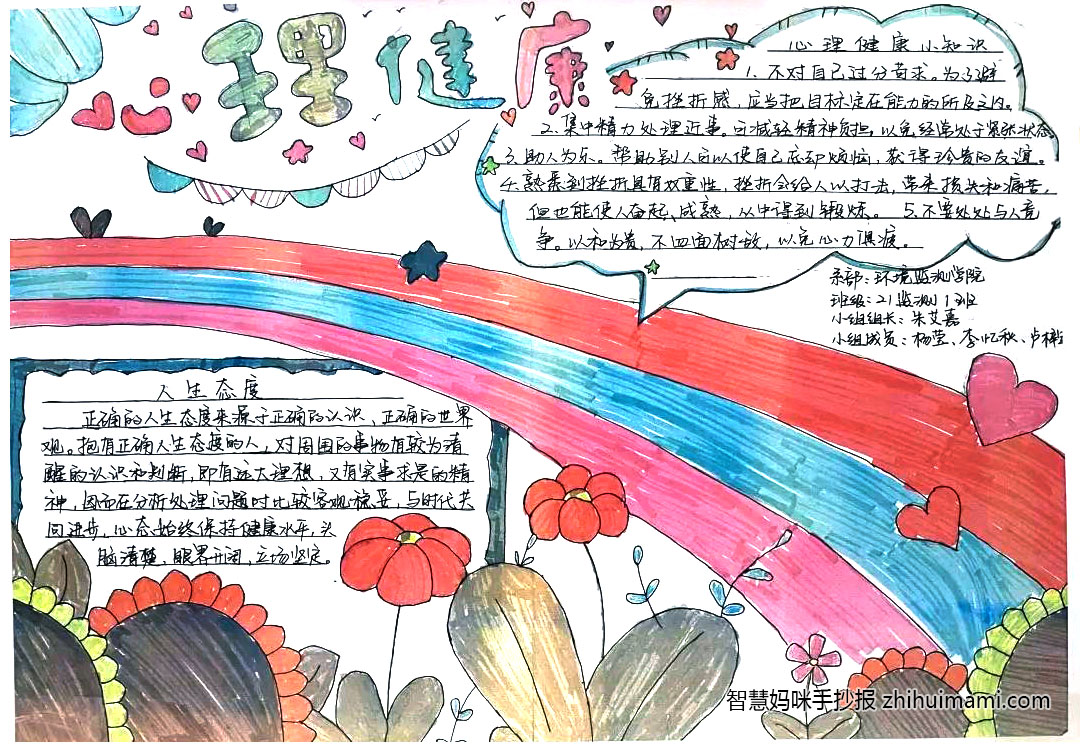 心理健康
心理健康小知识
1. 不对自己过分苛求。为了避
免挫折感，应当把目标定在能力的所及之内。
2. 集中精力处理近事。可减轻精神负担，以免经常处于紧张状态
3. 助人为乐。帮助别人可以使自己忘却烦恼，获得珍贵的友谊。
4. 熟悉到挫折具有双重性，挫折会给人以打击，带来损失和痛苦，
但也能使人奋起、成熟，从中得到锻炼。 5. 不要处处与人竞
争。以和为贵，不四面树敌，以免心力俱疲。
系部：环境监测学院
班级：21监测1班
小组组长：朱艾嘉
小组成员：杨莹、李忆秋、卢梅
人生态度
正确的人生态度来源于正确的认识、正确的世界
观。抱有正确人生态度的人，对周围的事物有较为清
醒的认识和判断，即有远大理想，又有实事求是的精
神，因而在分析处理问题时比较客观稳妥，与时代共
同进步，心态始终保持健康水平，头
脑清楚，眼界开阔，立场坚定。
智慧妈咪手抄报 zhihuimami.com